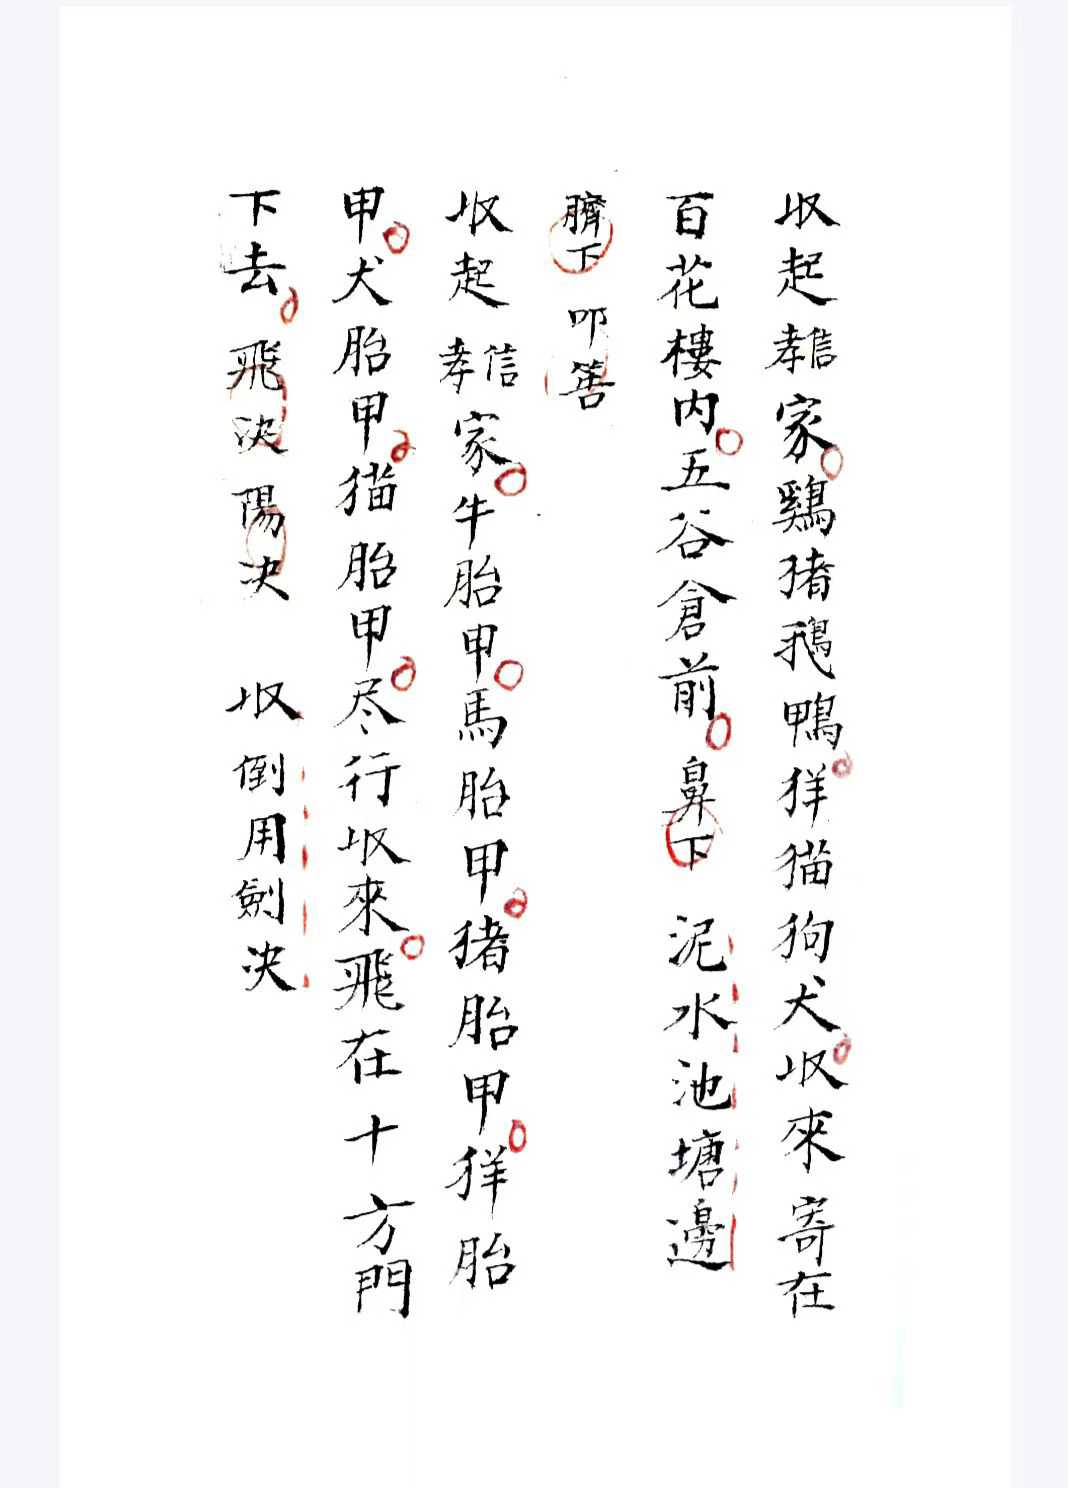 収起孝信家鷄猪鵝鴨犭羊猫狗犬収來寄在
百花樓内五谷倉前鼻下泥水池塘邊
臍下叩筶
収起孝信家牛胎甲馬胎甲猪胎甲犭羊胎
甲犬胎甲猫胎甲尽行収來飛在十方門
下去飛决陽决収倒用劍决